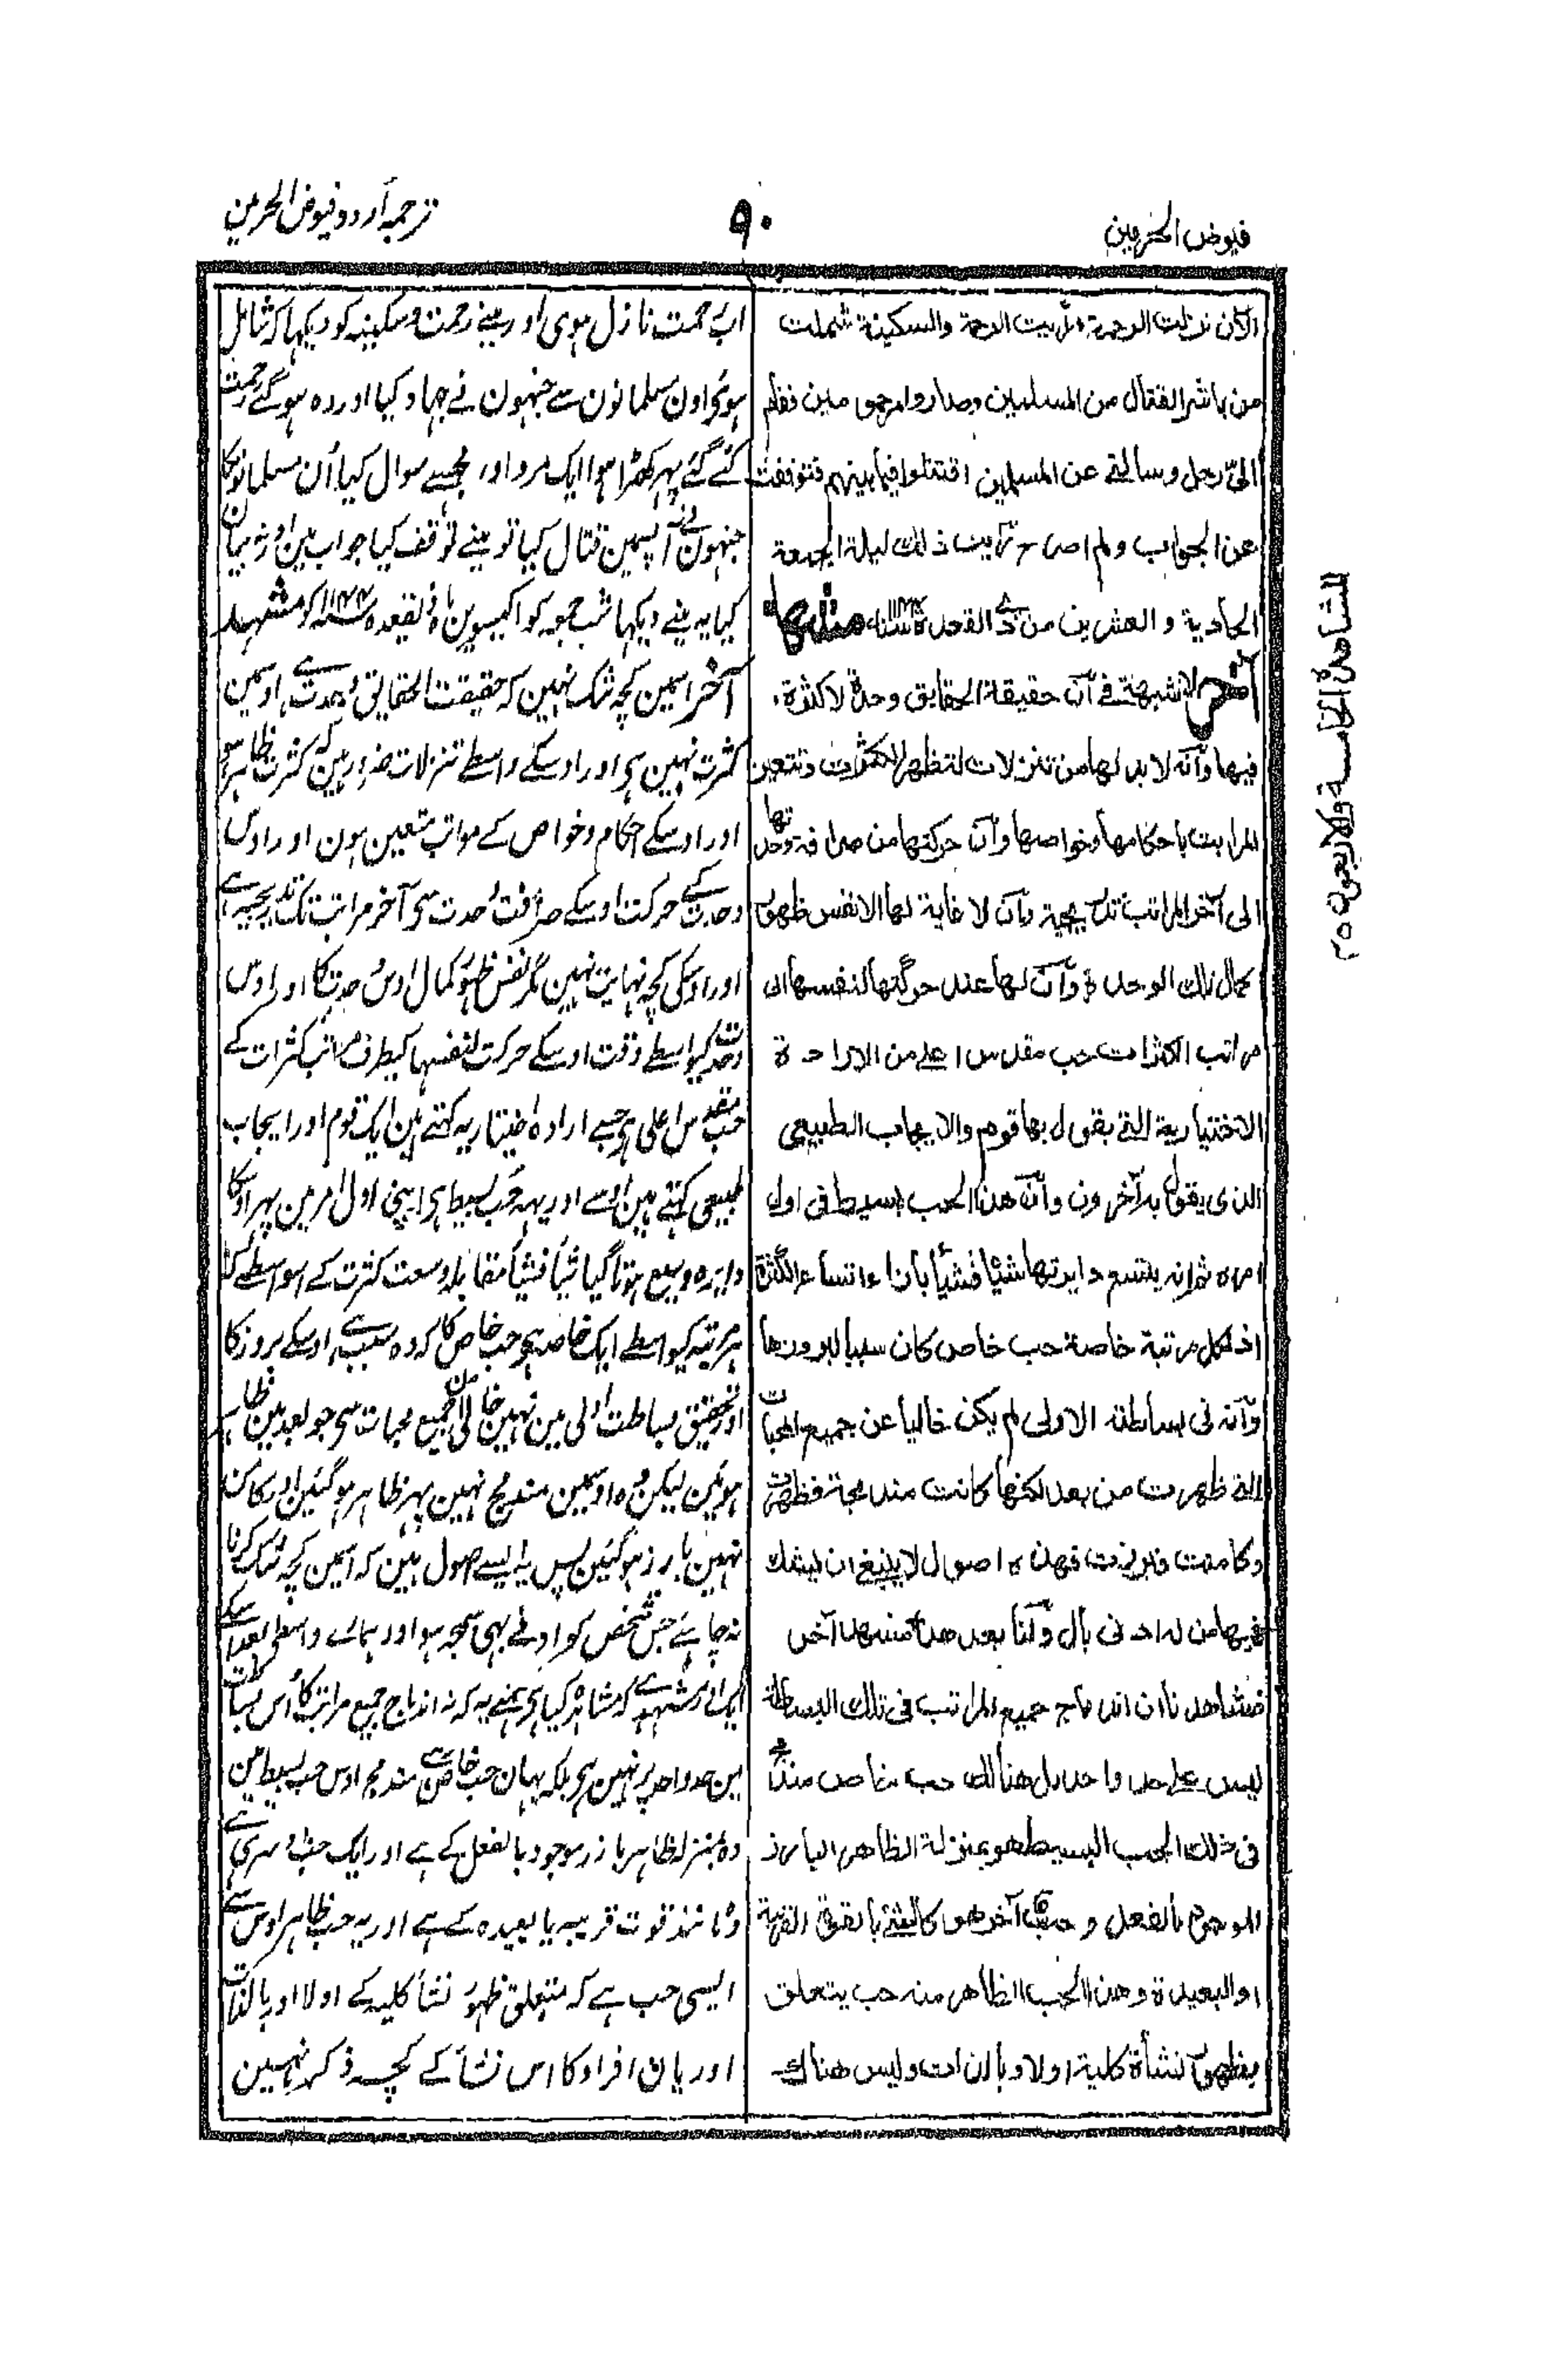 فیوض الحرمین
٩٠
ترجمہ اردو فیوض الحرمین
الآن نزلت الرحمة ورأيت الرحمة والسكينة شملت
من باشر القتال من المسلمين وصاروا مرحومين فقام
الیّ رجل وسالنی عن المسلمین اقتتلوا فیما بینہم فتوقفت
عن الجواب ولم اصرح رأيت ذلك ليلة الجمعة
الحادية والعشرين من ذی القعدة ١١٤٤ مشهد
آخر لا شبهة فی أن حقیقة الحقایق وحدة لا کثرة
فیها وأنه لا بد لها من تنزلات لتظهر الکثرات وتتعین
المراتب باحکامها وخواصها وأن حرکتها من صرافة وحدتها
الی آخر المراتب تدریجیة وأن لا غایة لها الا نفس ظهور
کمال تلك الوحدة وأن لها عند حرکتها لنفسها الی
مراتب الکثرات حب مقدس اعلی من الارادة
الاختیاریة التی یقول بها قوم والایجاب الطبیعی
الذی یقول به آخرون وأن هذا الحب بسیط فی اول
امره ثم انه یتسع دایرتها شیئا فشیئا بازاء اتساع الکثرة
اذ لکل مرتبة خاصة حب خاص کان سببا لبروزها
وأنه فی بساطته الاولی لم یکن خالیا عن جمیع المحبات
التی ظهرت من بعد لکنها کانت مندمجة فظهرت
وکامنت فبرزت فهذه اصول لا ینبغی ان یشك
فیها من له ادنی بال ولنا بعد هذا مشهد آخر
فشاهدنا ان اندماج جمیع المراتب فی تلك البساطة
لیس علی حد واحد بل هنالك حب خاص مندمج
فی ذلك الحب البسیط هو بمنزلة الظاهر البارز
الموجود بالفعل وحب آخر هو کالشئ بالقوة القریبة
او البعیدة وهذا الحب الظاهر منه حب یتعلق
بظهور نشأة کلیة اولا وبالذات ولیس هناك
اب رحمت نازل ہوی اور مینے رحمت و سکینہ کو دیکھا کہ شامل
ہوی اون مسلمانون سے جنہون نے جہاد کیا اور وہ ہو گئے رحمت
کئے گئے پہر کھڑا ہوا ایک مرد اور مجھسے سوال کیا اُن مسلمانونکا
جنہون نے آپسمین قتال کیا تو مینے توقف کیا جواب مین اور نہ بیان
کیا یہ مینے دیکھا شب جمعہ کو اکیسوین ماہ ذیقعدہ ١١٤٤ کو مشہد
آخر اسمین کچہ شک نہین کہ حقیقت الحقایق وحدت ہے اوسمین
کثرت نہین ہی اور اوسکے واسطے تنزلات ضرور ہین کہ کثرت ظاہر ہو
اور اوسکے احکام و خواص کے مراتب متعین ہون اور اوس
وحدت کے حرکت اوسکے صرافت وحدت سی آخر مراتب تک تدریجیہ ہے
اور اوسکی کچہ نہایت نہین مگر نفس ظہور کمال اوس وحدت کا اور اوس
وحدت کیواسطے وقت اوسکے حرکت لنفسہا کیطرف مراتب کثرات کے
حب مقدس اعلی ہی جسے ارادہ اختیاریہ کہتے ہین ایک قوم اور ایجاب
طبیعی کہتے ہین اوسے اور یہہ حب بسیط ہی اپنی اول امر مین پہر اوسکا
دایرہ وسیع ہوتا گیا شیأ فشیأ مقابلہ وسعت کثرت کے اسواسطے کہ
ہر مرتبہ کیواسطے ایک خاصہ ہی حب خاص کا کہ وہ سبب ہے اوسکے بروز کا
اور تحقیق بساطت اولی مین نہین خالی جمیع محبات سی جو بعد مین ظاہر
ہوئین لیکن وہ اوسمین مندمج تہین پہر ظاہر ہو گئین اور کامن
تہین بارز ہو گئین پس یہ ایسے اصول ہین کہ اسمین کچہ شک کرنا
نہ چاہئے جس شخص کو ادنے بہی سمجہ ہو اور ہمارے واسطے بعد اسکے
ایک اور مشہد ہے کہ مشاہدہ کیا ہی ہمنے یہ کہ نہ اندماج جمیع مراتب کا اُس بساطت
مین حد واحد پر نہین ہی بلکہ یہان حب خاص ہے مندمج اوس حب بسیط مین
وہ بمنزلہ ظاہر بارز موجود بالفعل کے ہے اور ایک حب دوسری ہے
وہ مانند قوت قریبہ یا بعیدہ کے ہے اور یہ حب ظاہر اوس سے
ایسی حب ہے کہ متعلق ظہور نشأ کلیہ کے اولا اور بالذات
اور یہان افراد کا اس نشأ کے کچہ ذکر نہین
المشاهدة الخامسة والاربعون ٤٥